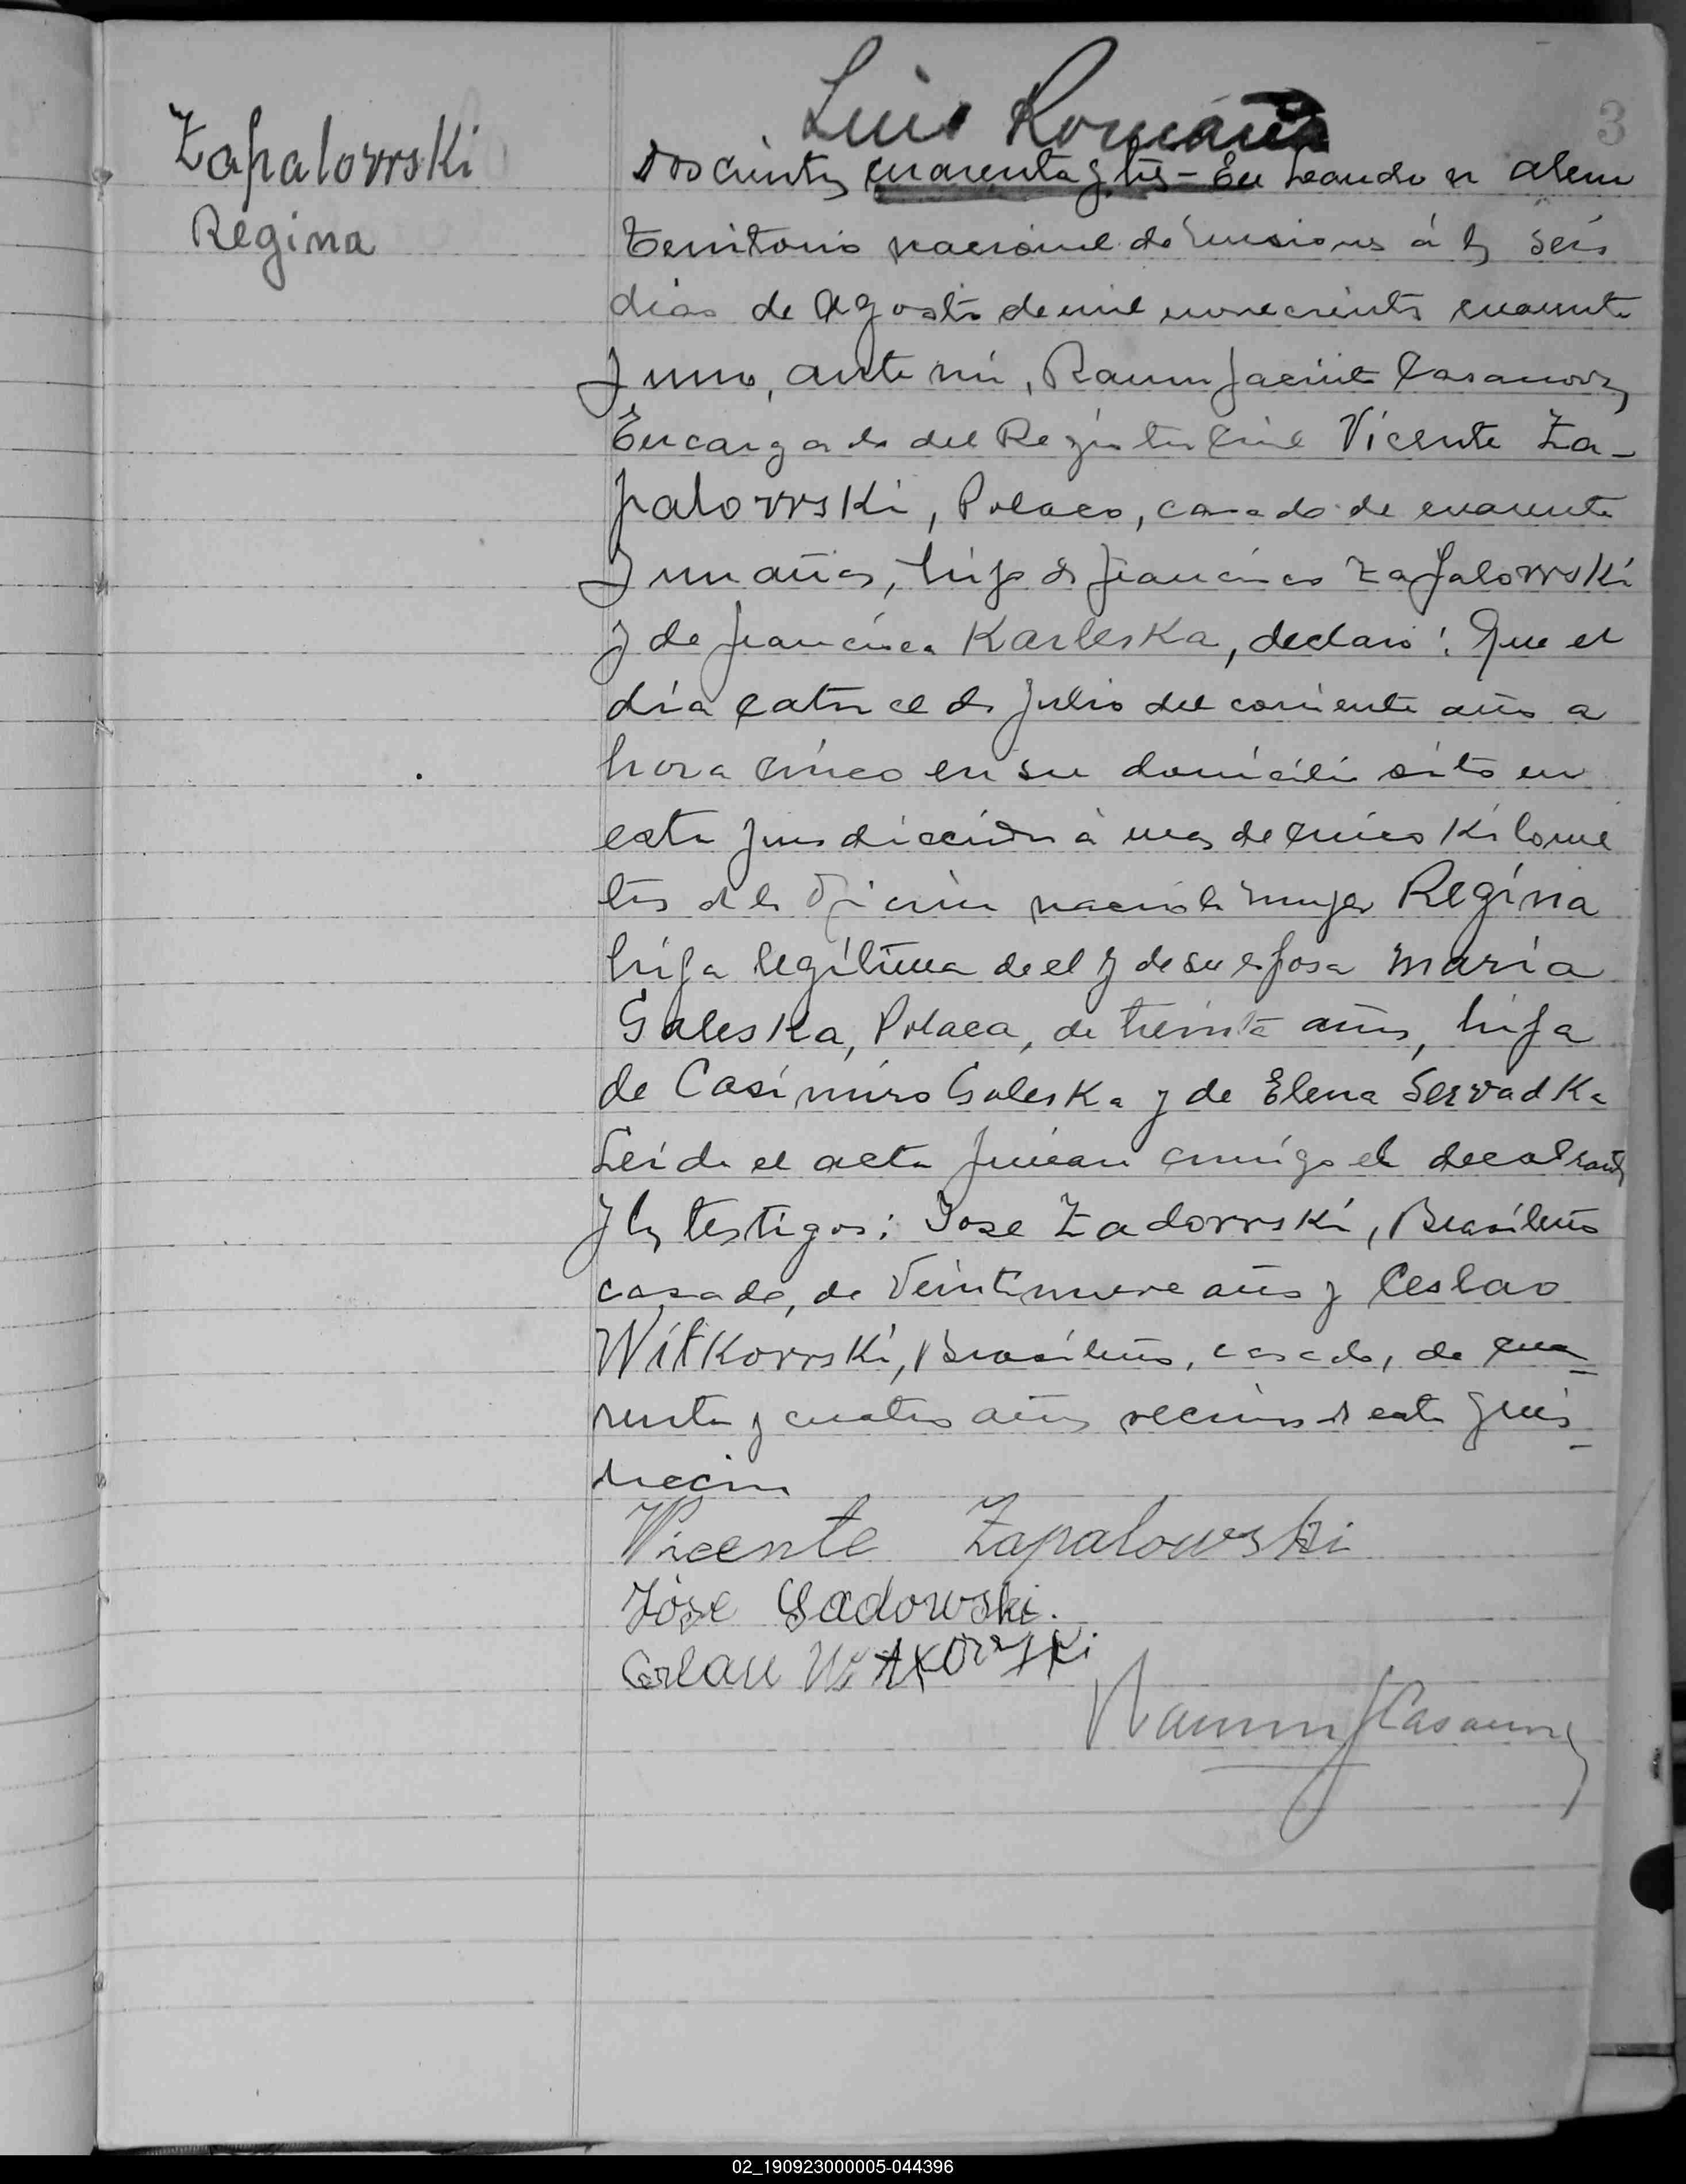 Zapalowski
Regina
Luis Roman
3
Doscientos cuarenta y tres - En Leandro N Alem
Territorio nacional de Misiones á los seis
dias de Agosto de mil novecientos cuarenta
y uno, ante mi, Ramon Jacinto Casanova,
Encargado del Registro Civil Vicente Za-
palowski, Polaco, casado de cuarenta
y un años, hijo de Francisco Zapalowski
y de Francisca Karleska, declaró: Que el
día catorce de Julio del corriente año a
hora cinco en su domicilio sito en
esta jurisdicción á mas de cinco kilome
tros de la Oficina nació la mujer Regina
hija legítima de el y de su esposa María
Galeska, Polaca, de treinta años, hija
de Casimiro Galeska y de Elena Servadka
Leida el acta firman conmigo el declarante
y los testigos: Jose Zadowski, Brasileño
casado, de veintinueve años y Ceslao
Witkowski, Brasileño, casado, de cua-
renta y cuatro años vecinos de esta juris-
dicción
Vicente Zapalowski
Jóse Sadowski.
Ceslau Witkowski
Ramon J Casanova
02_190923000005-044396